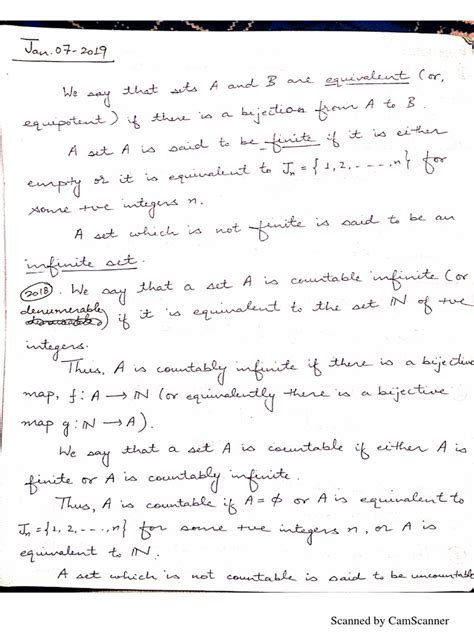 Jan. 07-2019
We say that sets A and B are equivalent (or,
equipotent) if there is a bijection from A to B.
A set A is said to be finite if it is either
empty or it is equivalent to Jn = {1, 2, -----, n} for
some +ve integers n.
A set which is not finite is said to be an
infinite set.
(2018). We say that a set A is countable infinite (or
denumerable) if it is equivalent to the set IN of +ve
integers.
Thus, A is countably infinite if there is a bijective
map, f: A → IN (or equivalently there is a bijective
map g: IN → A).
We say that a set A is countable if either A is
finite or A is countably infinite.
Thus, A is countable if A = ϕ or A is equivalent to
Jn = {1, 2, ----, n} for some +ve integers n, or A is
equivalent to IN.
A set which is not countable is said to be uncountable
Scanned by CamScanner